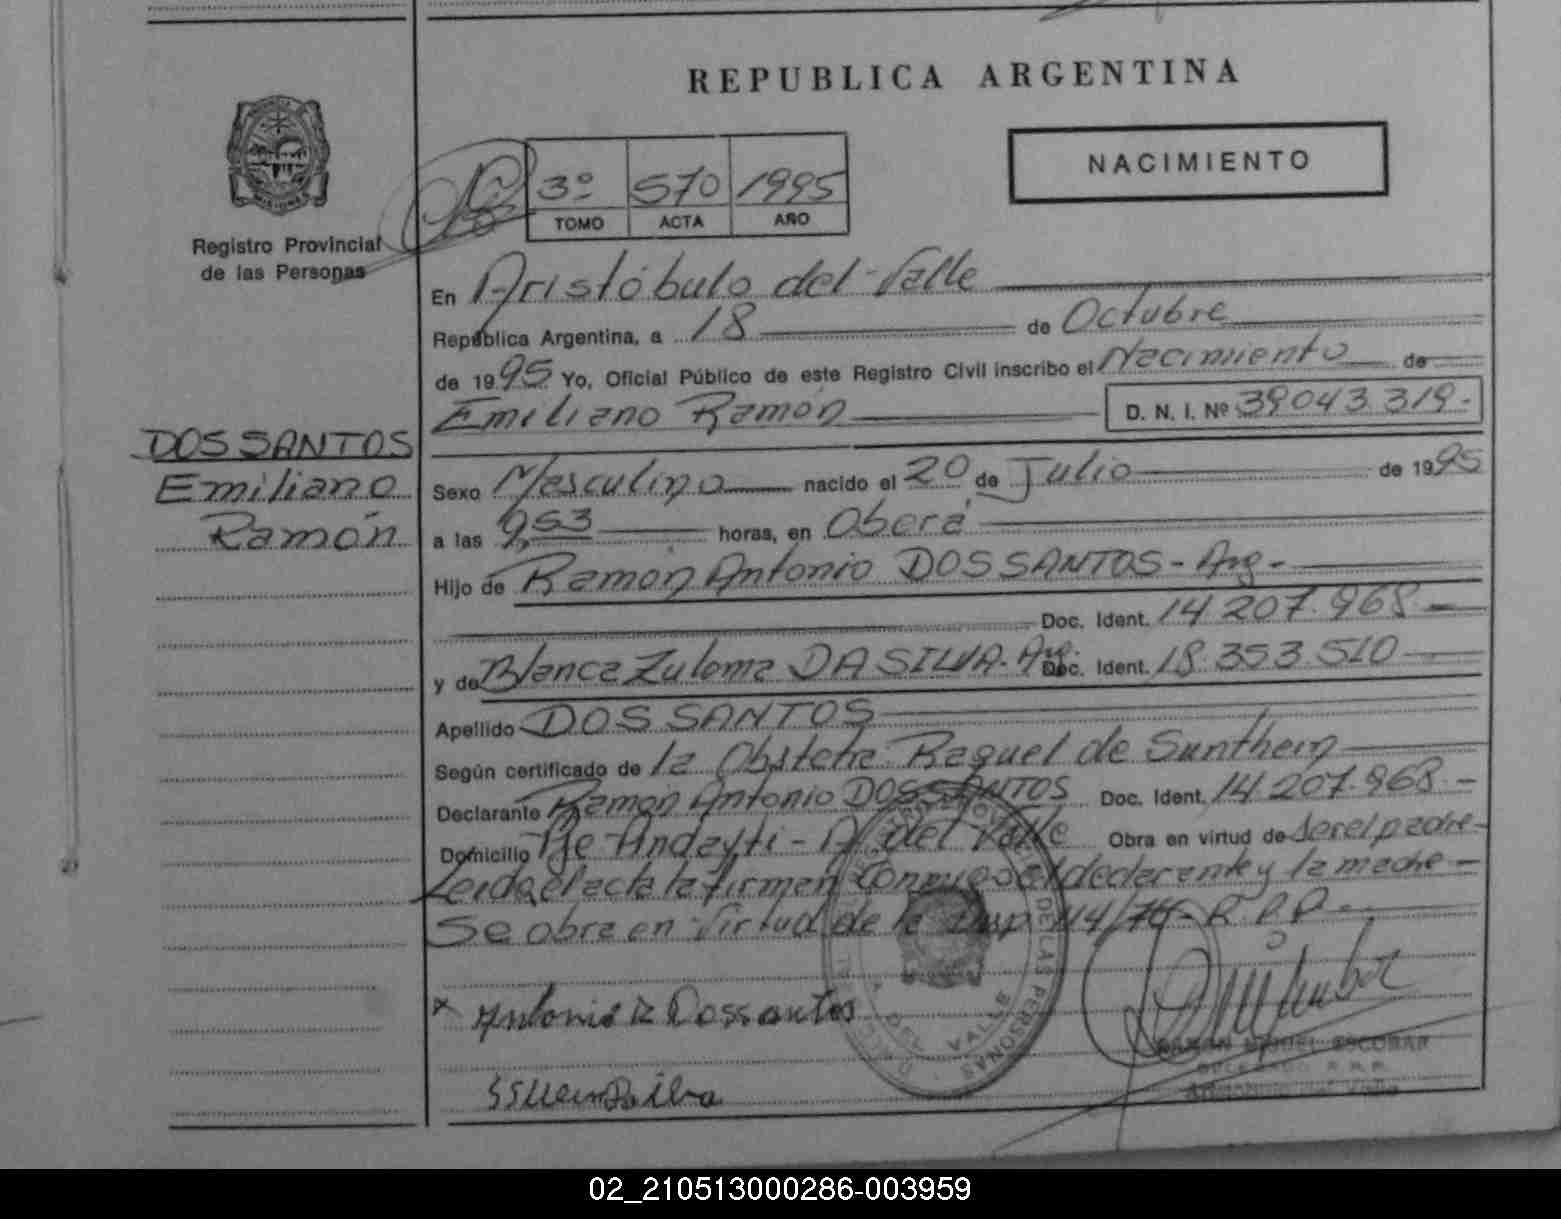 REPUBLICA ARGENTINA
NACIMIENTO
3º 570 1995
TOMO ACTA AÑO
Registro Provincial
de las Personas
En Aristóbulo del Valle
República Argentina, a 18 de Octubre
de 1995 Yo, Oficial Público de este Registro Civil inscribo el Nacimiento de
Emiliano Ramón D. N. I. Nº 39043319-
DOS SANTOS
Emiliano
Ramón
Sexo Masculino nacido el 20 de Julio de 1995
a las 9,53 horas, en Oberá
Hijo de Ramón Antonio DOS SANTOS - Arg -
Doc. Ident. 14.207.968
y de Blanca Zulema DA SILVA. Arg. Doc. Ident. 18.353.510
Apellido DOS SANTOS
Según certificado de la Obstetra Raquel de
Declarante Ramón Antonio DOS SANTOS Doc. Ident. 14.207.968 -
Domicilio Pje Andaytí - A. del Valle Obra en virtud de ser el padre-
Leida el acta la firman conmigo el declarante y la madre -
Se obra en virtud de la Disp. 114/74- R.P.P.
x Antonio R Dossantos
DE LAS PERSONAS
DEL VALLE
RAMON MIGUEL ESCOBAR
DELEGADO R.P.P.
Aristóbulo del Valle
02_210513000286-003959